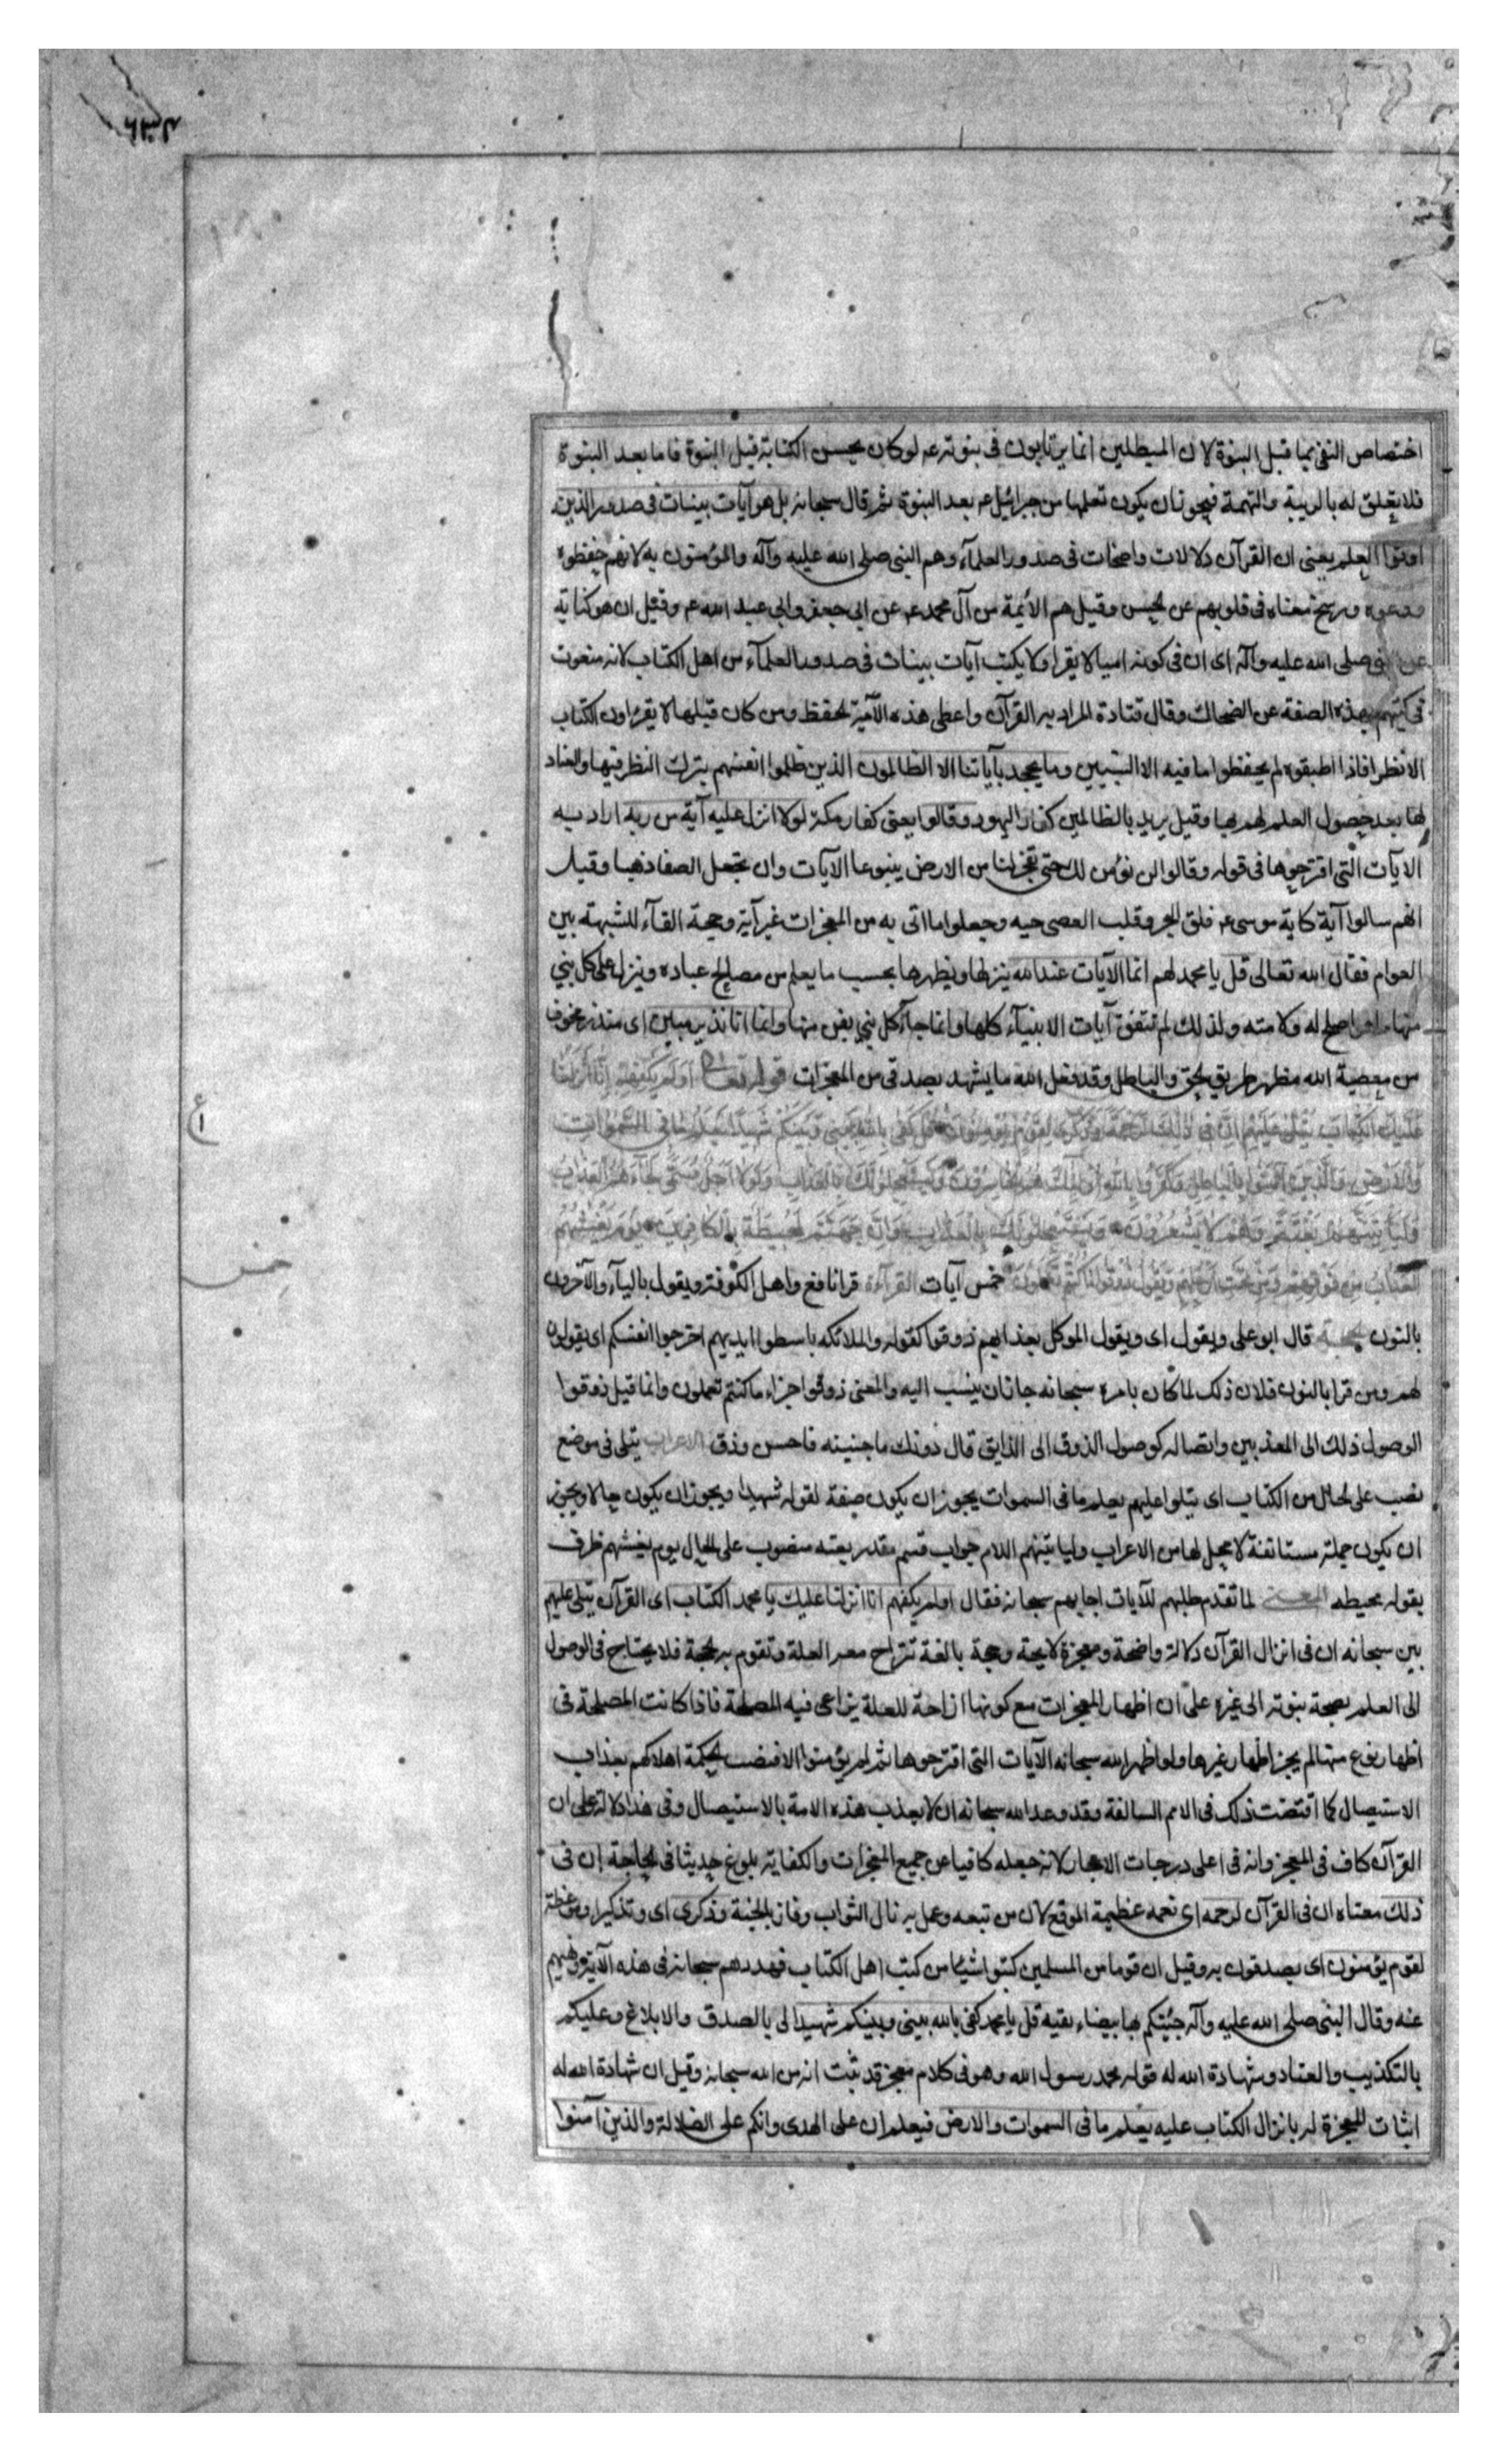 اختصاص النفي بما قبل النبوة لان المبطلين انما يرتابون فى نبوته عم لو كان يحسن الكتابة قبل النبوة فاما بعد النبوة
فلا يتعلق له بالريبة والتهمة فيجوز ان يكون تعلمها من جبرائيل عم بعد النبوة ثم قال سبحانه بل هو آيات بينات فى صدور الذين
اوتوا العلم يعنى ان القرآن دلالات واضحات فى صدور العلمآء وهم النبى صلى الله عليه وآله والمؤمنون به لانهم حفظوه
ووعوه ورسخ معناه فى قلوبهم عن الحسن وقيل هم الأئمة من آل محمد عم عن ابى جعفر وابى عبد الله عم وقيل ان هو كناية
عن النبى صلى الله عليه وآله اى ان فى كونه اميا لا يقرا ولا يكتب آيات بينات فى صدور العلمآء من اهل الكتاب لانه منعوت
فى كتبهم بهذه الصفة عن الضحاك وقال قتادة المراد به القرآن واعطى هذه الآمة الحفظ ومن كان قبلها لا يقرؤن الكتاب
الا نظرا فاذا اطبقوه لم يحفظوا ما فيه الا النبيين وما يجحد بآياتنا الا الظالمون الذين ظلموا انفسهم بترك النظر فيها والعناد
لها بعد حصول العلم لهم بها وقيل يريد بالظالمين كفار اليهود وقالوا يعنى كفار مكة لولا انزل عليه آية من ربه اراد به
الآيات التى اقترحوها فى قوله وقالوا لن نؤمن لك حتى تفجر لنا من الارض ينبوعا الآيات وان تجعل الصفا ذهبا وقيل
انهم سالوا آية كاية موسى عم فلق البحر وقلب العصى حيه وجعلوا ما اتى به من المعجزات غير آية وحجة القآء للشبهة بين
العوام فقال الله تعالى قل يا محمد لهم انما الآيات عند الله ينزلها ويظهرها بحسب ما يعلم من مصالح عباده وينزل على كل نبي
منها ما هو اصلح له ولامته ولذلك لم تتفق آيات الانبيآء كلها وانما جآء كل نبي بفن منها وانما انا نذير مبين اى منذر مخوف
من معصية الله مظهر طريق الحق والباطل وقد فعل الله ما يشهد بصدقى من المعجزات قوله تعالى اولم يكفهم انا انزلنا
عليك الكتاب يتلى عليهم ان فى ذلك لرحمة وذكرى لقوم يؤمنون قل كفى بالله بينى وبينكم شهيدا يعلم ما فى السموات
والارض والذين آمنوا بالباطل وكفروا بالله اولئك هم الخاسرون ويستعجلونك بالعذاب ولولا اجل مسمى لجآءهم العذاب
وليأتينهم بغتة وهم لا يشعرون يستعجلونك بالعذاب وان جهنم لمحيطة بالكافرين يوم يغشيهم
العذاب من فوقهم ومن تحت ارجلهم ويقول ذوقوا ما كنتم تعملون خمس آيات القرآءة قرا نافع واهل الكوفة ويقول باليآء والآخرون
بالنون الحجة قال ابو على ويقول اى ويقول الموكل بعذابهم ذوقوا كقوله والملائكه باسطوا ايديهم اخرجوا انفسكم اى يقولون
لهم ومن قرا بالنون فلان ذلك لما كان بامره سبحانه جاز ان ينسب اليه والمعنى ذوقوا جزاء ما كنتم تعملون وانما قيل ذوقوا
لوصول ذلك الى المعذبين واتصاله كوصول الذوق الى الذايق قال دونك ما جنيته فاحس وذق الاعراب يتلى فى موضع
نصب على الحال من الكتاب اى يتلوا عليهم يعلم ما فى السموات يجوز ان يكون صفة لقوله شهيدا ويجوز ان يكون حالا ويجوز
ان يكون جملة مستانفة لا محل لها من الاعراب وليأتينهم اللام جواب قسم مقدر بغته منصوب على الحال يوم يغشيهم ظرف
لقوله محيطه المعنى لما تقدم طلبهم للآيات اجابهم سبحانه فقال اولم يكفهم انا انزلنا عليك يا محمد الكتاب اى القرآن يتلى عليهم
بين سبحانه ان فى انزال القرآن دلالة واضحة ومعجزة لايحة وحجة بالغة تنزاح معه العلة وتقوم به الحجة فلا يحتاج فى الوصول
الى العلم بصحة نبوته الى غيره على ان اظهار المعجزات مع كونها ازاحة للعلة يراعى فيه المصلحة فاذا كانت المصلحة فى
اظهار نوع منها لم يجز اظهار غيرها ولو اظهر الله سبحانه الآيات التى اقترحوها ثم لم يؤمنوا لاقتضت الحكمة اهلاكهم بعذاب
الاستيصال كما اقتضت ذلك فى الامم السالفة وقد وعد الله سبحانه ان لا يعذب هذه الامة بالاستيصال وفى هذا دلالة على ان
القرآن كاف فى المعجز وانه فى اعلى درجات الاعجاز لانه جعله كافيا عن جميع المعجزات والكفاية بلوغ حد يثافى الحاجة ان فى
ذلك معناه ان فى القرآن لرحمه اى نعمه عظيمة الموقع لان من تبعه وعمل به نال الثواب وفاز بالجنة وذكرى اى وتذكيرا وموعظة
لقوم يؤمنون اى يصدقون به وقيل ان قوما من المسلمين كتبوا شيئا من كتب اهل الكتاب فهددهم سبحانه فى هذه الآية ونهيهم
عنه وقال النبى صلى الله عليه وآله جئيتكم بها بيضاء نقيه قل يا محمد كفى بالله بينى وبينكم شهيدا لى بالصدق والابلاغ وعليكم
بالتكذيب والعناد وشهادة الله له قوله محمد رسول الله وهو فى كلام معجز قد ثبت انه من الله سبحانه وقيل ان شهادة الله له
اثبات المعجزة له بانزال الكتاب عليه يعلم ما فى السموات والارض فيعلم ان على الهدى وانكم على الضلالة والذين آمنوا
ع
١
خمس